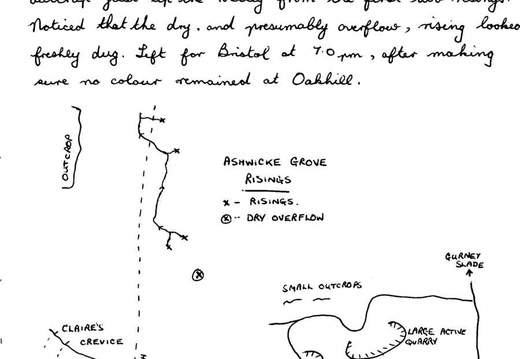 Noticed that the dry, and presumably overflow, rising looked
freshly dug. Left for Bristol at 7.0 pm, after making
sure no colour remained at Oakhill.
OUTCROP
ASHWICKE GROVE
RISINGS
x - RISINGS.
⊗ - DRY OVERFLOW
GURNEY
SLADE
SMALL OUTCROPS
CLAIRE'S
CREVICE
LARGE ACTIVE
QUARRY